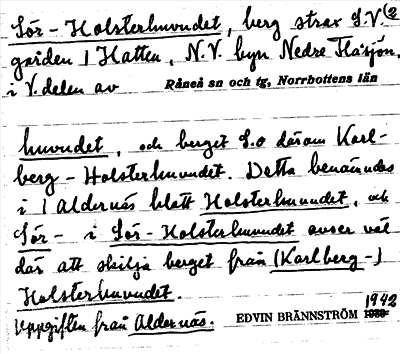 Sör-Holsterhuvudet, berg strax S.V. (2
gården 1 Hatten, N.V. byn Nedre Flåsjön,
i V. delen av Råneå sn och tg, Norrbottens län
huvudet, och berget S.O därom Karl-
berg-Holsterhuvudet. Detta benämndes
i 1 Aldernäs blott Holsterhuvudet, och
Sör- i Sör-Holsterhuvudet avser väl
där att skilja berget från (Karlberg-)
Holsterhuvudet.
Uppgiften från Aldernäs. EDVIN BRÄNNSTRÖM 1942